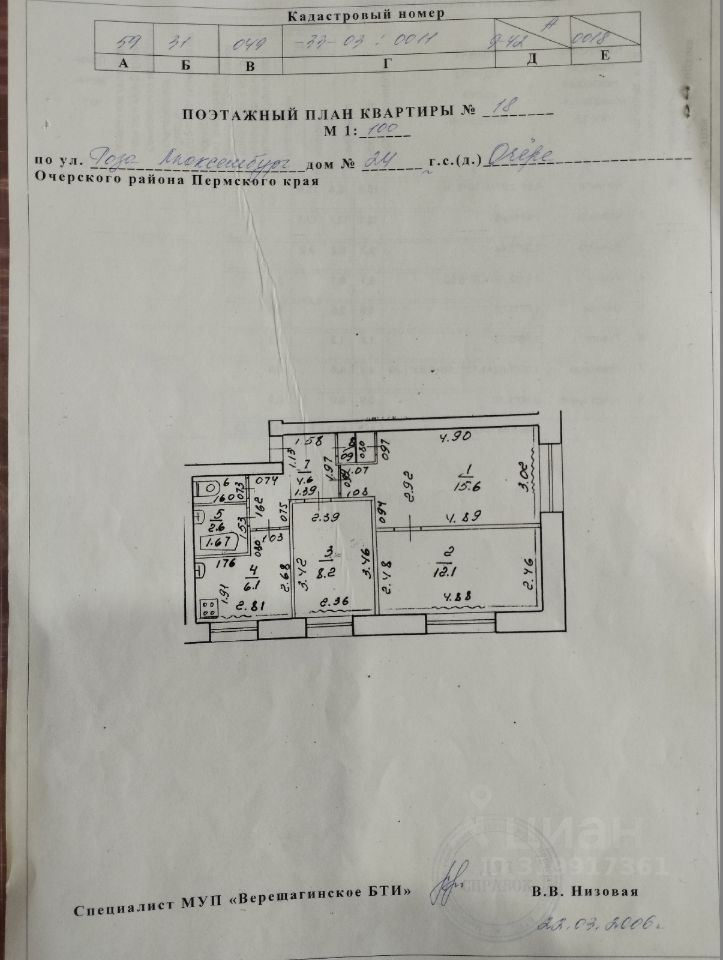 Кадастровый номер
59 31 049 -33-03 : 0011 9-42 А 0018
А Б В Г Д Е
ПОЭТАЖНЫЙ ПЛАН КВАРТИРЫ № 18
М 1: 100
по ул. Роза Люксембург дом № 24 г.с.(д.) Очёре
Очерского района Пермского края
1.58 4.90
1.13 7 4.6 1.97 060 080 097 1 15.6 3.02
6 160 073 074 1.39 1.07 1.08 2.92
5 2.6 1.53 162 075 2.39 094 4.89
1.67 1.03
176 080 3 8.2 2 12.1
4 6.1 2.68 3.42 3.46 2.48 2.46
1.91 2.81 2.36 4.88
циан
ID 319917361
СПРАВОК
Специалист МУП «Верешагинское БТИ» В.В. Низовая
22.03.2006г.